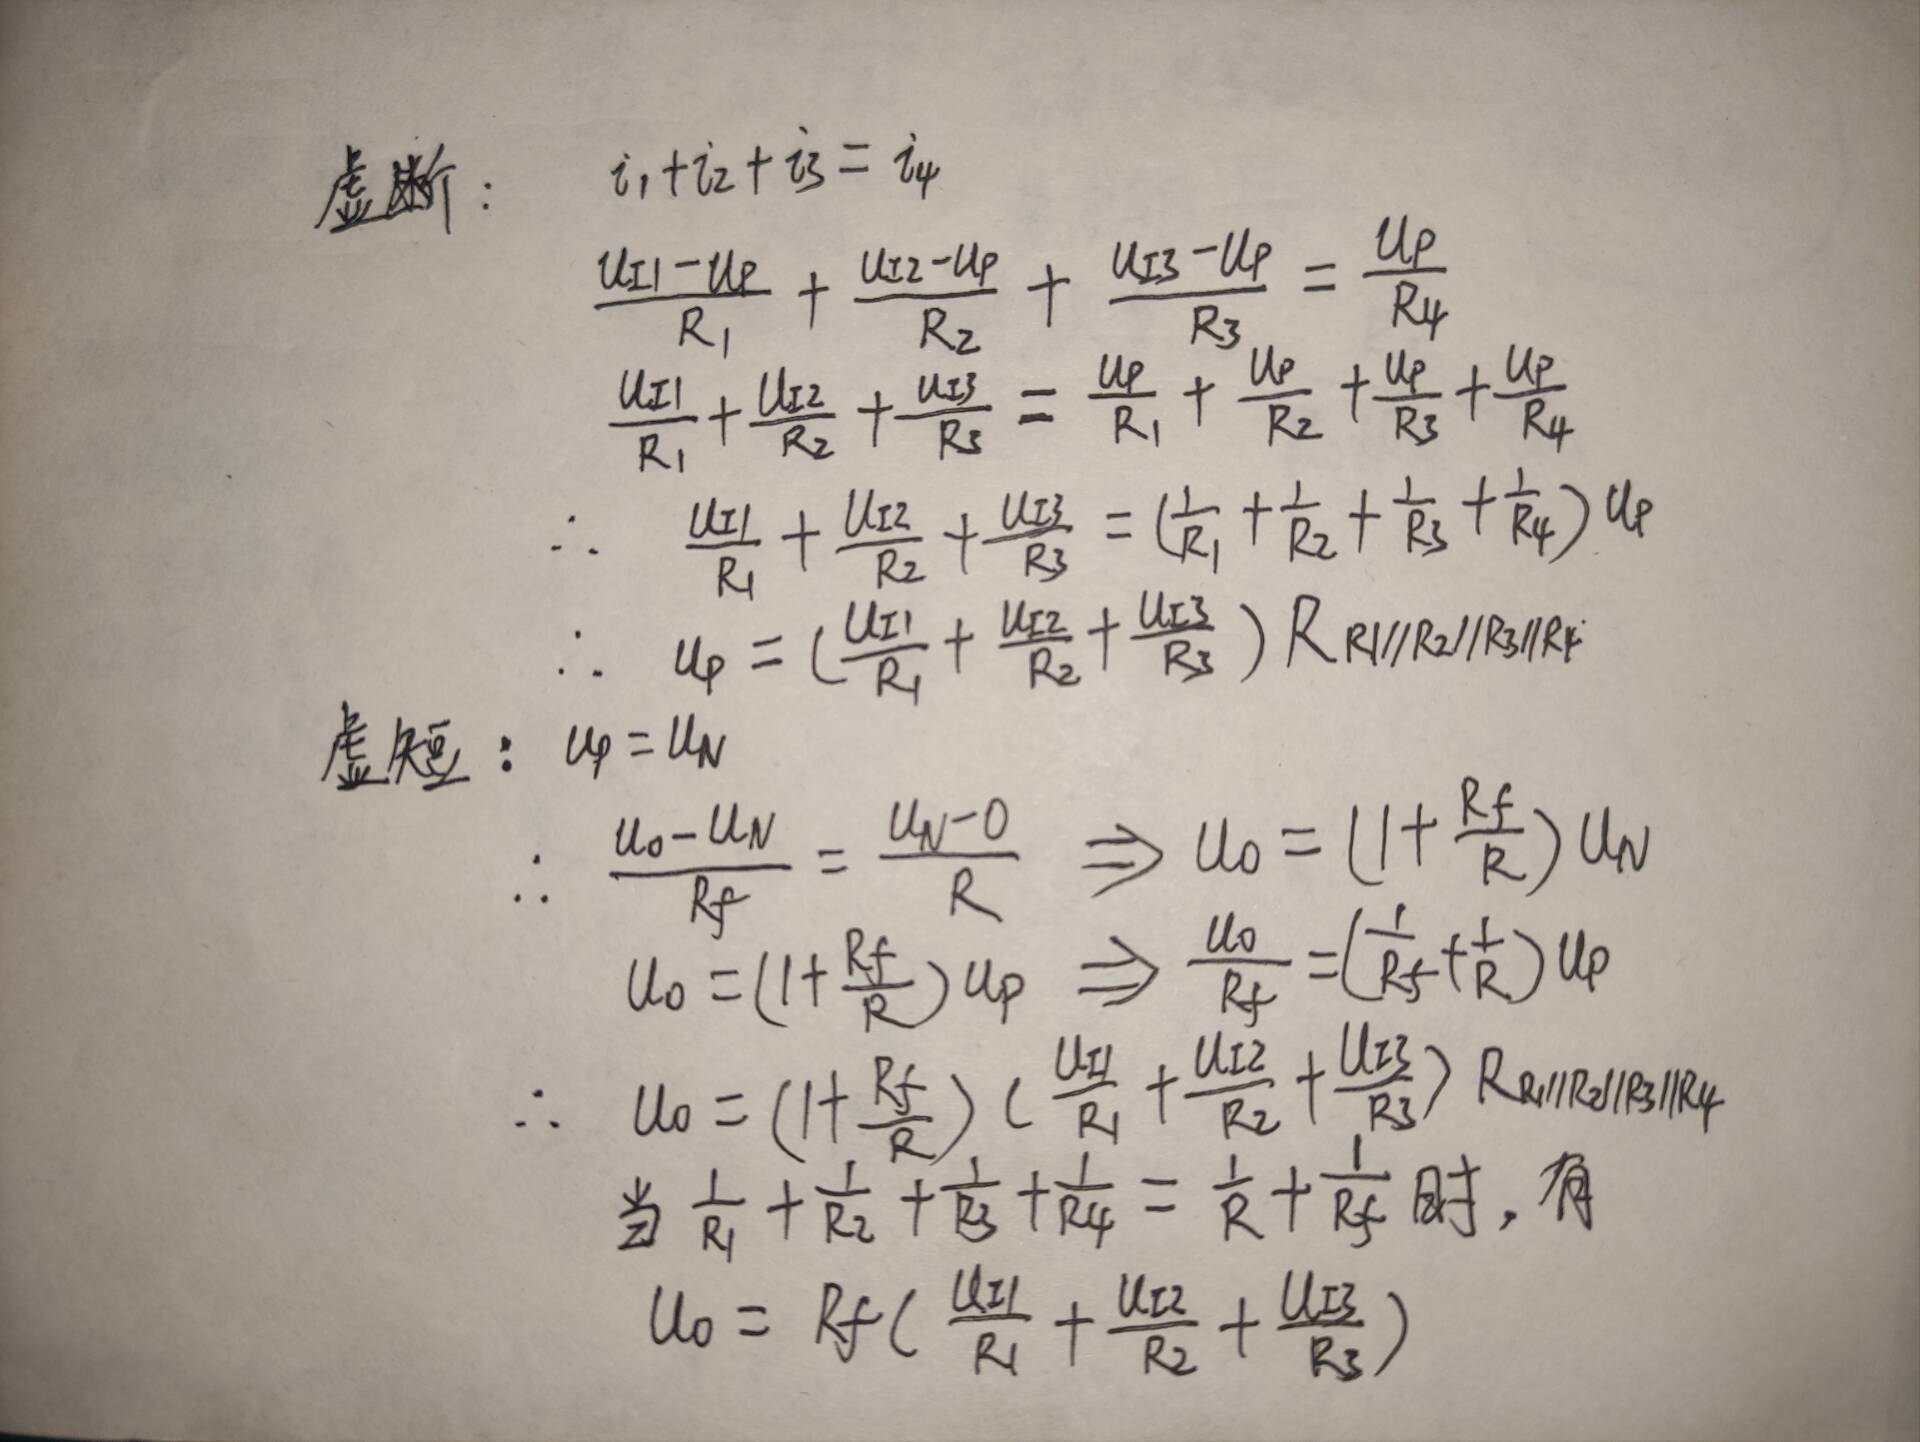 虚断: i₁+i₂+i₃=i₄
(u_I1-u_P)/R₁ + (u_I2-u_P)/R₂ + (u_I3-u_P)/R₃ = u_P/R₄
u_I1/R₁ + u_I2/R₂ + u_I3/R₃ = u_P/R₁ + u_P/R₂ + u_P/R₃ + u_P/R₄
∴ u_I1/R₁ + u_I2/R₂ + u_I3/R₃ = (1/R₁ + 1/R₂ + 1/R₃ + 1/R₄) u_P
∴ u_P = (u_I1/R₁ + u_I2/R₂ + u_I3/R₃) R_R1//R2//R3//R4
虚短: u_P = u_N
∴ (u_o-u_N)/R_f = (u_N-0)/R ⇒ u_o = (1 + R_f/R) u_N
u_o = (1 + R_f/R) u_P ⇒ u_o/R_f = (1/R_f + 1/R) u_P
∴ u_o = (1 + R_f/R) (u_I1/R₁ + u_I2/R₂ + u_I3/R₃) R_R1//R2//R3//R4
当 1/R₁ + 1/R₂ + 1/R₃ + 1/R₄ = 1/R + 1/R_f 时, 有
u_o = R_f (u_I1/R₁ + u_I2/R₂ + u_I3/R₃)